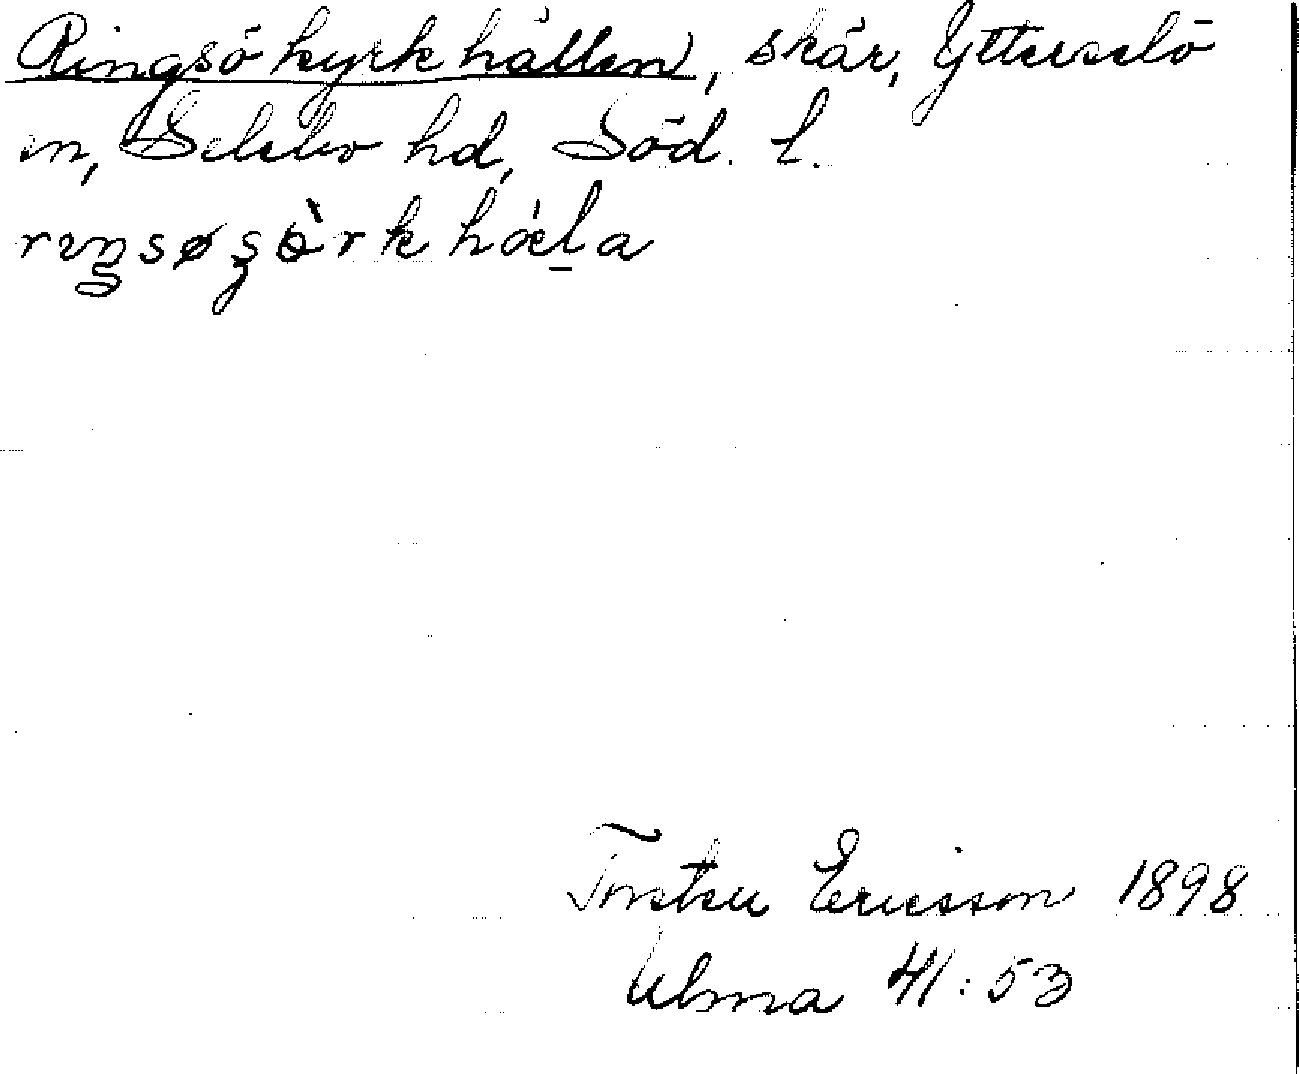 Ringsö kyrkhällen, skär, Ytterselö
sn, Selebo hd, Söd. l.
rɪŋsøʂɵ̀rkhǽḷa
Torsten Ericsson 1898
Ulma 41:53